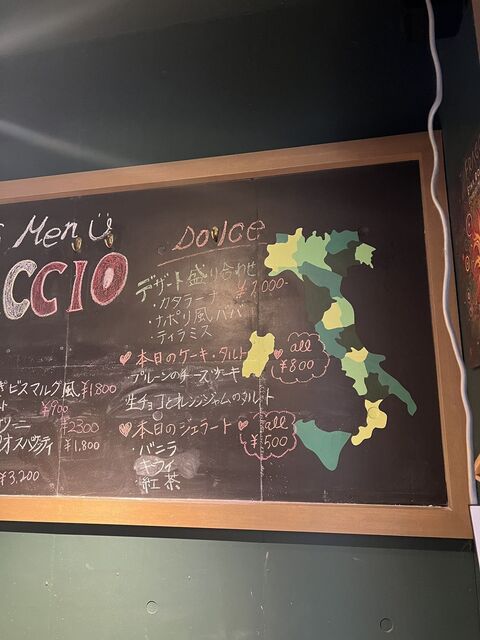 Menü
CCIO
ビスマルク風 ¥1800
¥900
¥2300
¥1,800
¥3,200
Dolce
デザート盛り合わせ
¥1,000-
・カタラーナ
・ナポリ風ババ
・ティラミス
♡本日のケーキ・タルト
♡ all ¥800
プルーンのチーズケーキ
生チョコとオレンジジャムのタルト
♡本日のジェラート
♡ all ¥500
・バニラ
・紅茶